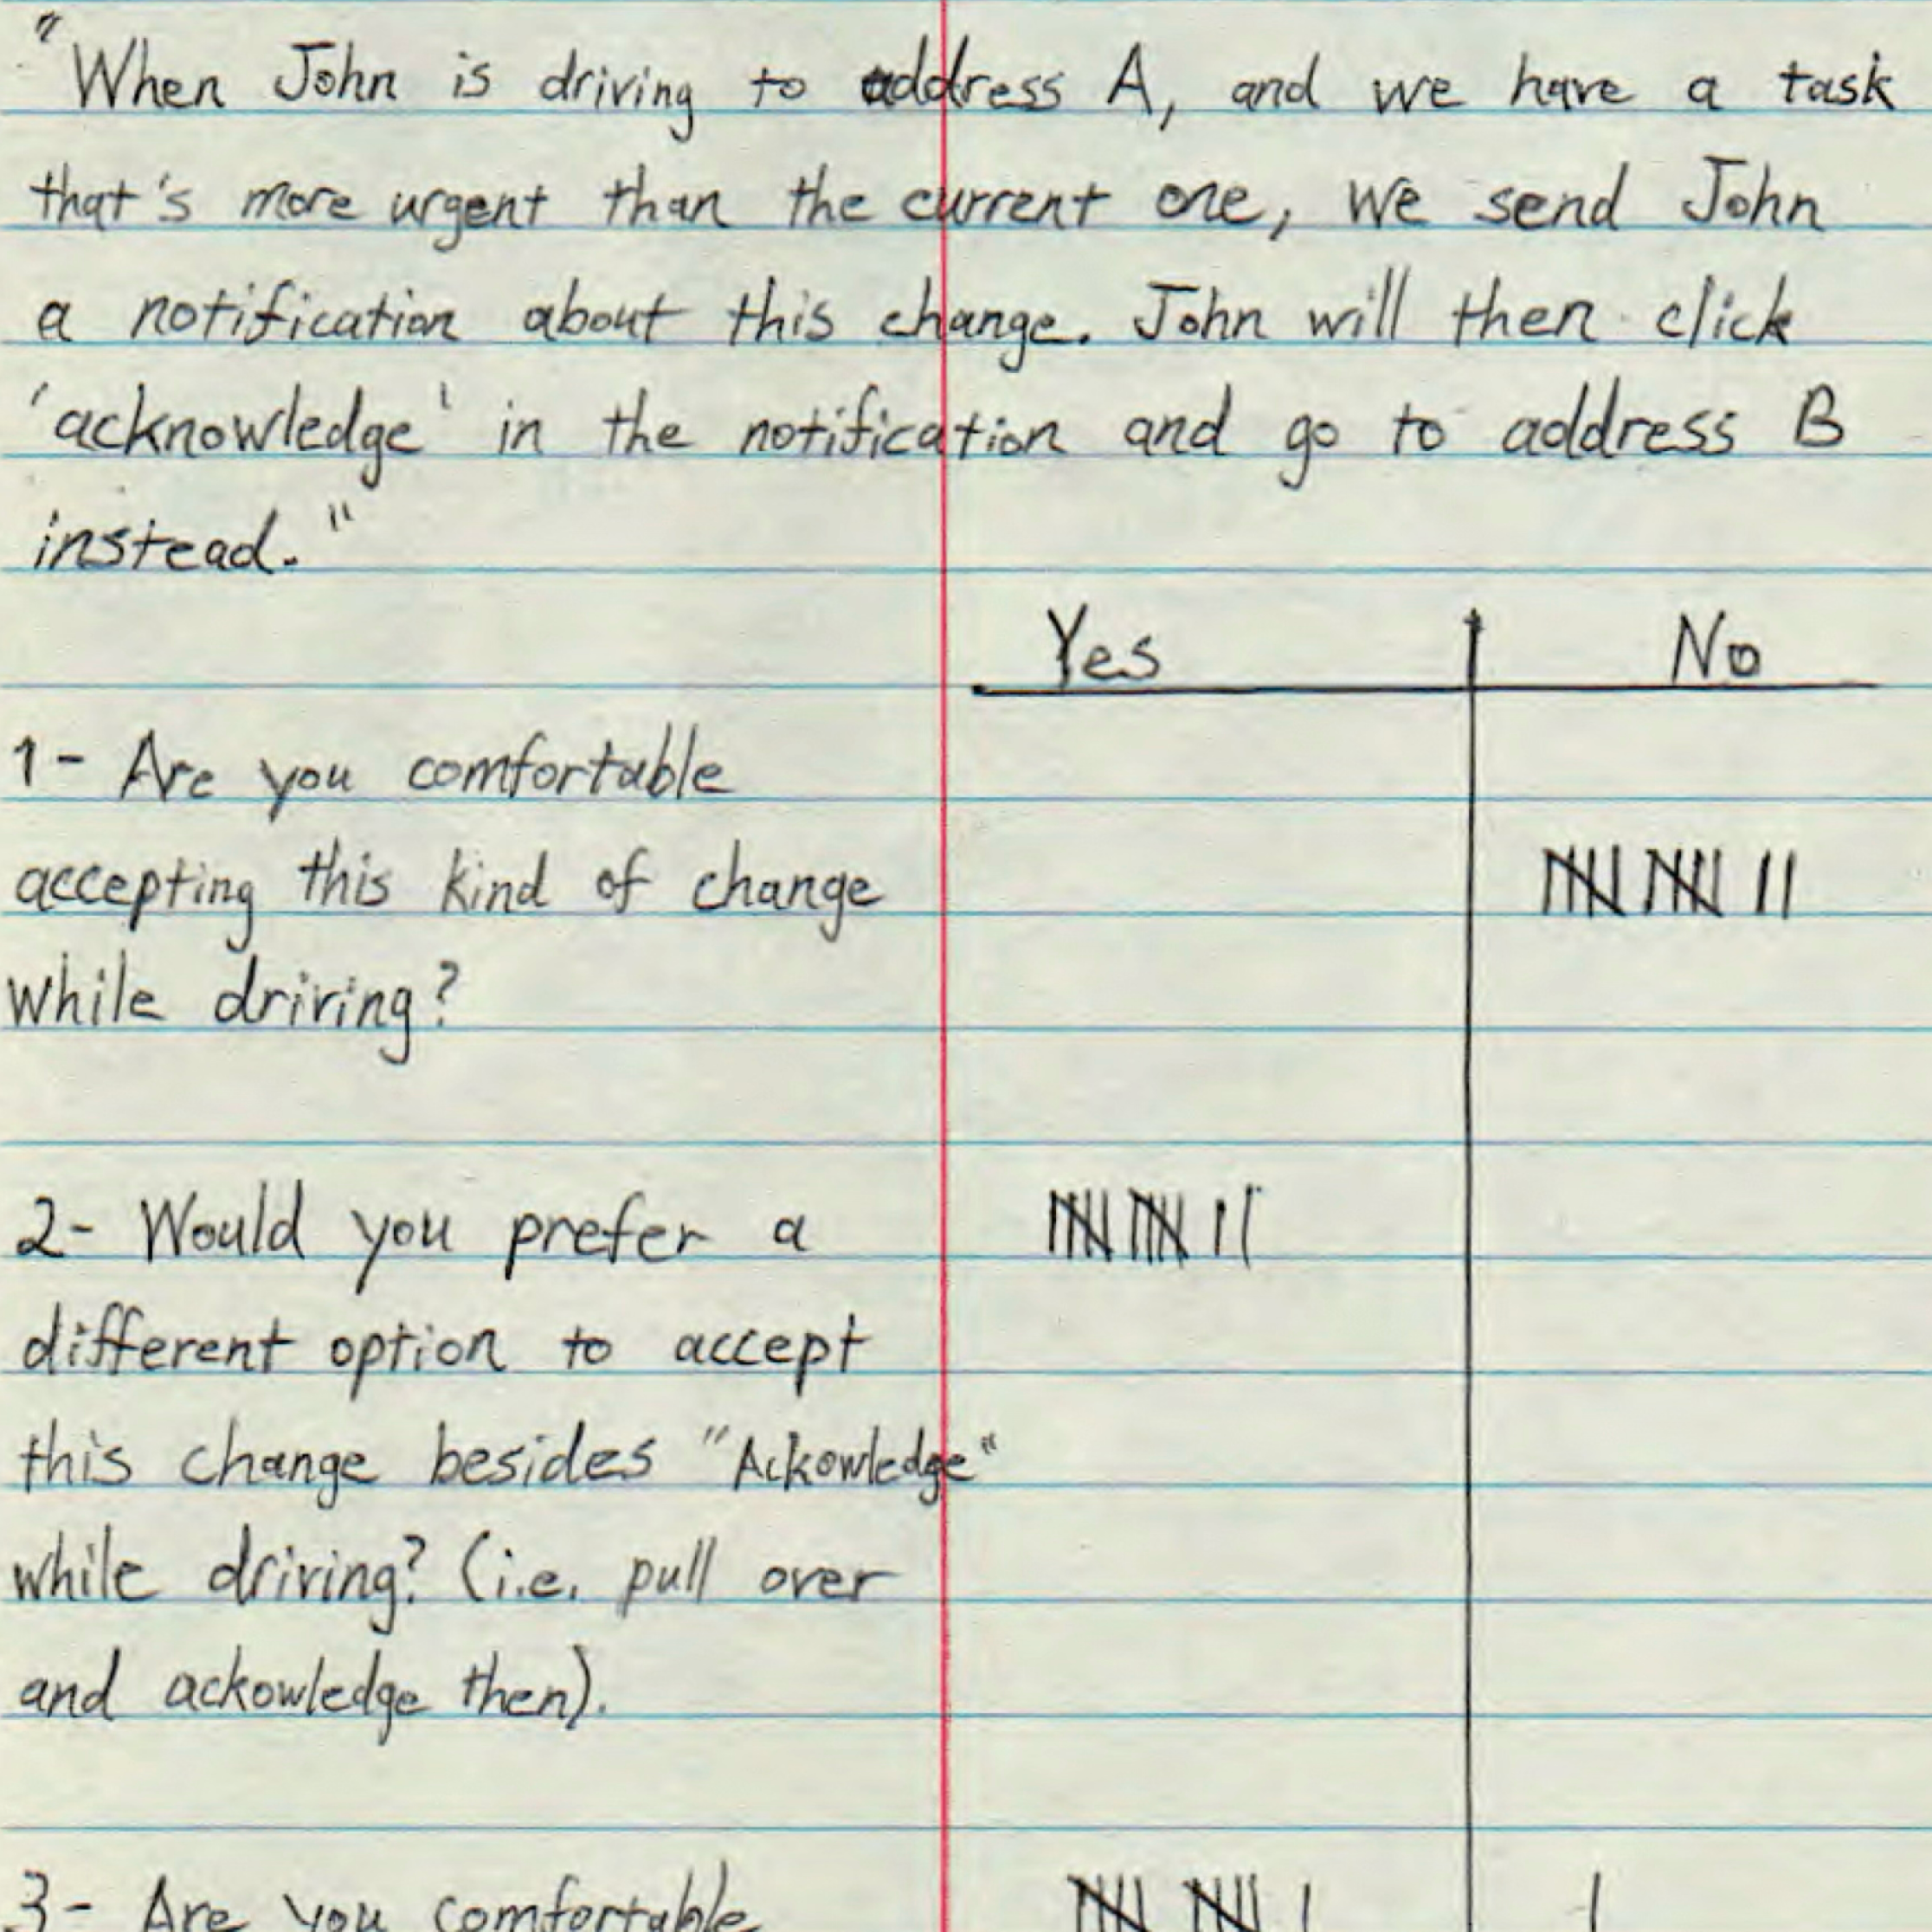 "When John is driving to address A, and we have a task
that's more urgent than the current one, we send John
a notification about this change. John will then click
'acknowledge' in the notification and go to address B
instead."
Yes No
1- Are you comfortable
accepting this kind of change
while driving?
2- Would you prefer a
different option to accept
this change besides "Ackowledge"
while driving? (i.e. pull over
and ackowledge then).
3- Are you comfortable